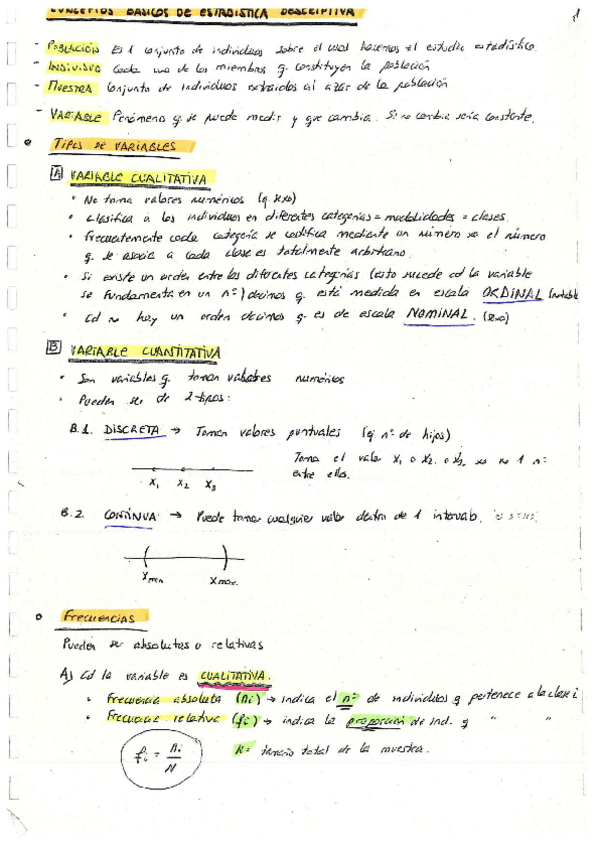 CONCEPTOS BÁSICOS DE ESTADÍSTICA DESCRIPTIVA
- Población Es 1 conjunto de individuos sobre el cual hacemos el estudio estadístico.
- Individuo Cada uno de los miembros q. constituyen la población
- Muestra Conjunto de individuos extraidos al azar de la población
- VARIABLE Fenómeno q. se puede medir y que cambia. Si no cambia sería constante.
• TIPOS DE VARIABLES
A VARIABLE CUALITATIVA
• No toma valores numéricos (ej. sexo)
• Clasifica a los individuos en diferentes categorías = modalidades = clases.
• Frecuentemente cada categoría se codifica mediante un número xo el número
q. se asocia a cada clase es totalmente arbitrario.
• Si existe un orden entre las diferentes categorías (esto sucede cd la variable
se fundamenta en un nº) decimos q. está medida en escala ORDINAL
• Cd no hay un orden decimos q. es de escala NOMINAL. (sexo)
B VARIABLE CUANTITATIVA
• Son variables q. toman valores numéricos
• Pueden ser de 2 tipos:
B.1. DISCRETA → Toman valores puntuales (ej nº de hijos)
Toma el valor X1 o X2 o X3, xo no 1 nº
entre ellos.
X1 X2 X3
B.2. CONTÍNUA → Puede tomar cualquier valor dentro de 1 intervalo.
Xmin Xmax.
• Frecuencias
Pueden ser absolutas o relativas
A) Cd la variable es CUALITATIVA.
• Frecuencia absoluta (ni) → indica el nº de individuos q pertenece a la clase i
• Frecuencia relativa (fi) → indica la proporción de ind. q " "
fi = ni / N
N = tamaño total de la muestra.